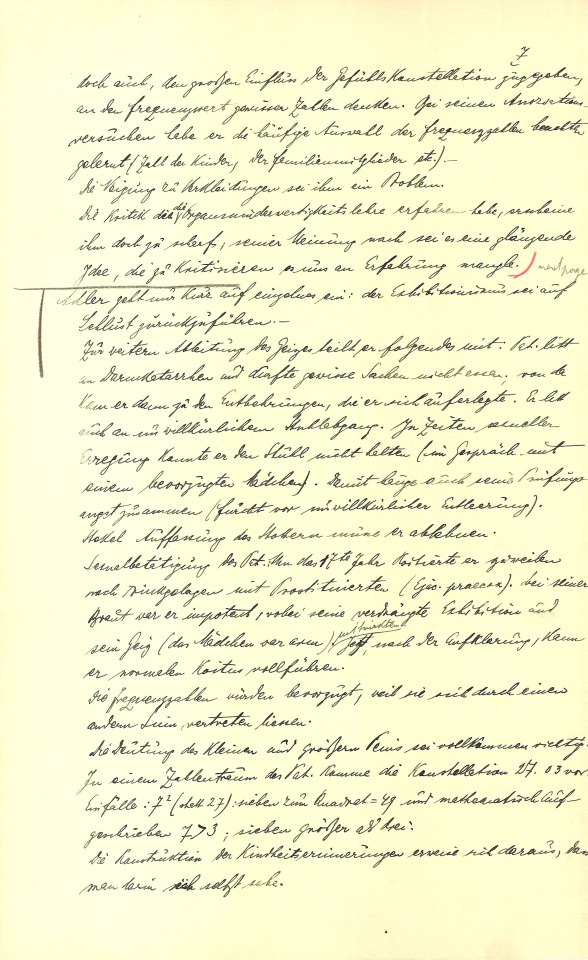 7
doch auch, den großen Einfluss der Gefühlskonstellation zugegeben,
an den Frequenzwert gewisser Zahlen denken. Bei seinen Assoziations-
versuchen habe er die häufige Auswahl der Frequenzzahlen beachten
gelernt (Zahl der Kinder, der Familienmitglieder etc.) –
Die Neigung zu Verkleidungen sei ihm ein Problem.
Die Kritik die die Organminderwertigkeitslehre erfahren habe, erscheine
ihm doch zu scharf, seiner Meinung nach sei es eine glänzende
Idee, die zu kritisieren es uns an Erfahrung mangle.) next page
Adler geht nur kurz auf einzelnes ein: der Exhibitionismus sei auf
zurückzuführen. –
Zur weitern Ableitung des Geizes teilt er folgendes mit: Pat. litt
an Darmkatarrhen und durfte gewisse Sachen nicht essen; von da
kam er dann zu den Entbehrungen, die er sich auferlegte. Er litt
auch an unwillkürlichem Stuhlabgang. In Zeiten sexueller
Erregung konnte er den Stuhl nicht halten (im Gespräch mit
einem bevorzugten Mädchen). Damit hänge auch seine Prüfungs-
angst zusammen (Furcht vor unwillkürlicher Entleerung).
Stekels Auffassung des Stotterns müsse er ablehnen.
Sexualbetätigung des Pat.: Um das 17te Jahr koitierte er zuweilen
nach Trinkgelagen mit Prostituierten (Ejac. praecox). Bei seiner
Braut war er impotent, wobei seine verdrängte Exhibition und
sein Geiz (das Mädchen war arm) mitwirkten. Jetzt, nach der Aufklärung, kann
er normalen Koitus vollführen.
Die Frequenzzahlen würden bevorzugt, weil sie sich durch einen
andern Sinn vertreten liessen.
Die Deutung des kleinen und größern Penis sei vollkommen richtig.
In einem Zahlentraum des Pat. komme die Konstellation 27. 03 vor
Einfälle: 7² (statt 27): sieben zum Quadrat = 49 und mathematisch auf-
geschrieben 7>3; sieben größer als drei.
Die Konstruktion der Kindheitserinnerungen erweise sich daraus, dass
man darin sich selbst sehe.